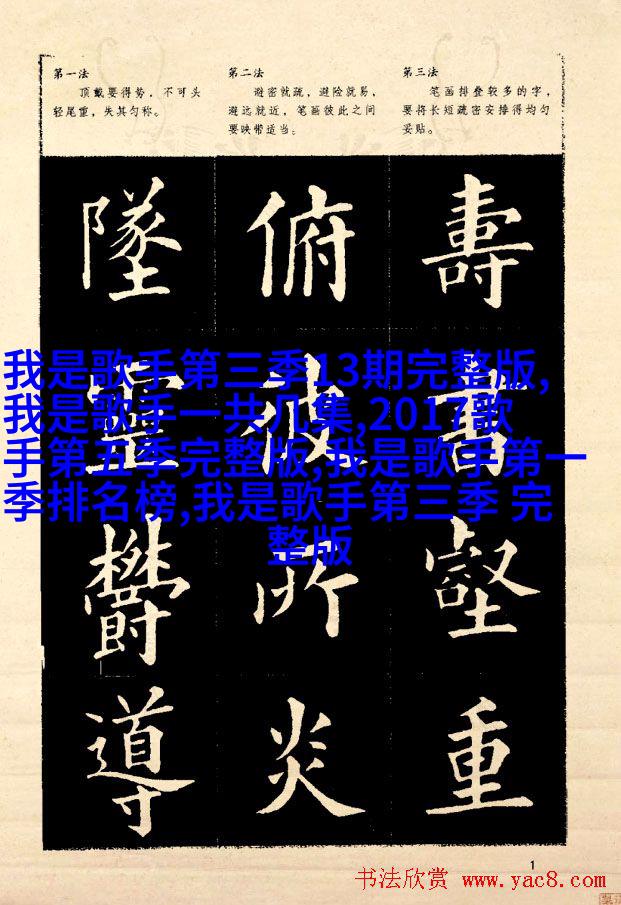 第一法
顶戴要得势，不可头
轻尾重，失其匀称。
第二法
避密就疏，避险就易，
避远就近，笔画彼此之间
要映带适当。
第三法
笔画排叠较多的字，
要将长短疏密安排得均匀
妥贴。
墜 俯 壽
靈 彼
欝 所 壑
導 炎 重
我是歌手第三季13期完整版,
我是歌手一共几集,2017歌
手第五季完整版,我是歌手第一
季排名榜,我是歌手第三季 完
整版
1
书法欣赏 www.yac8.com